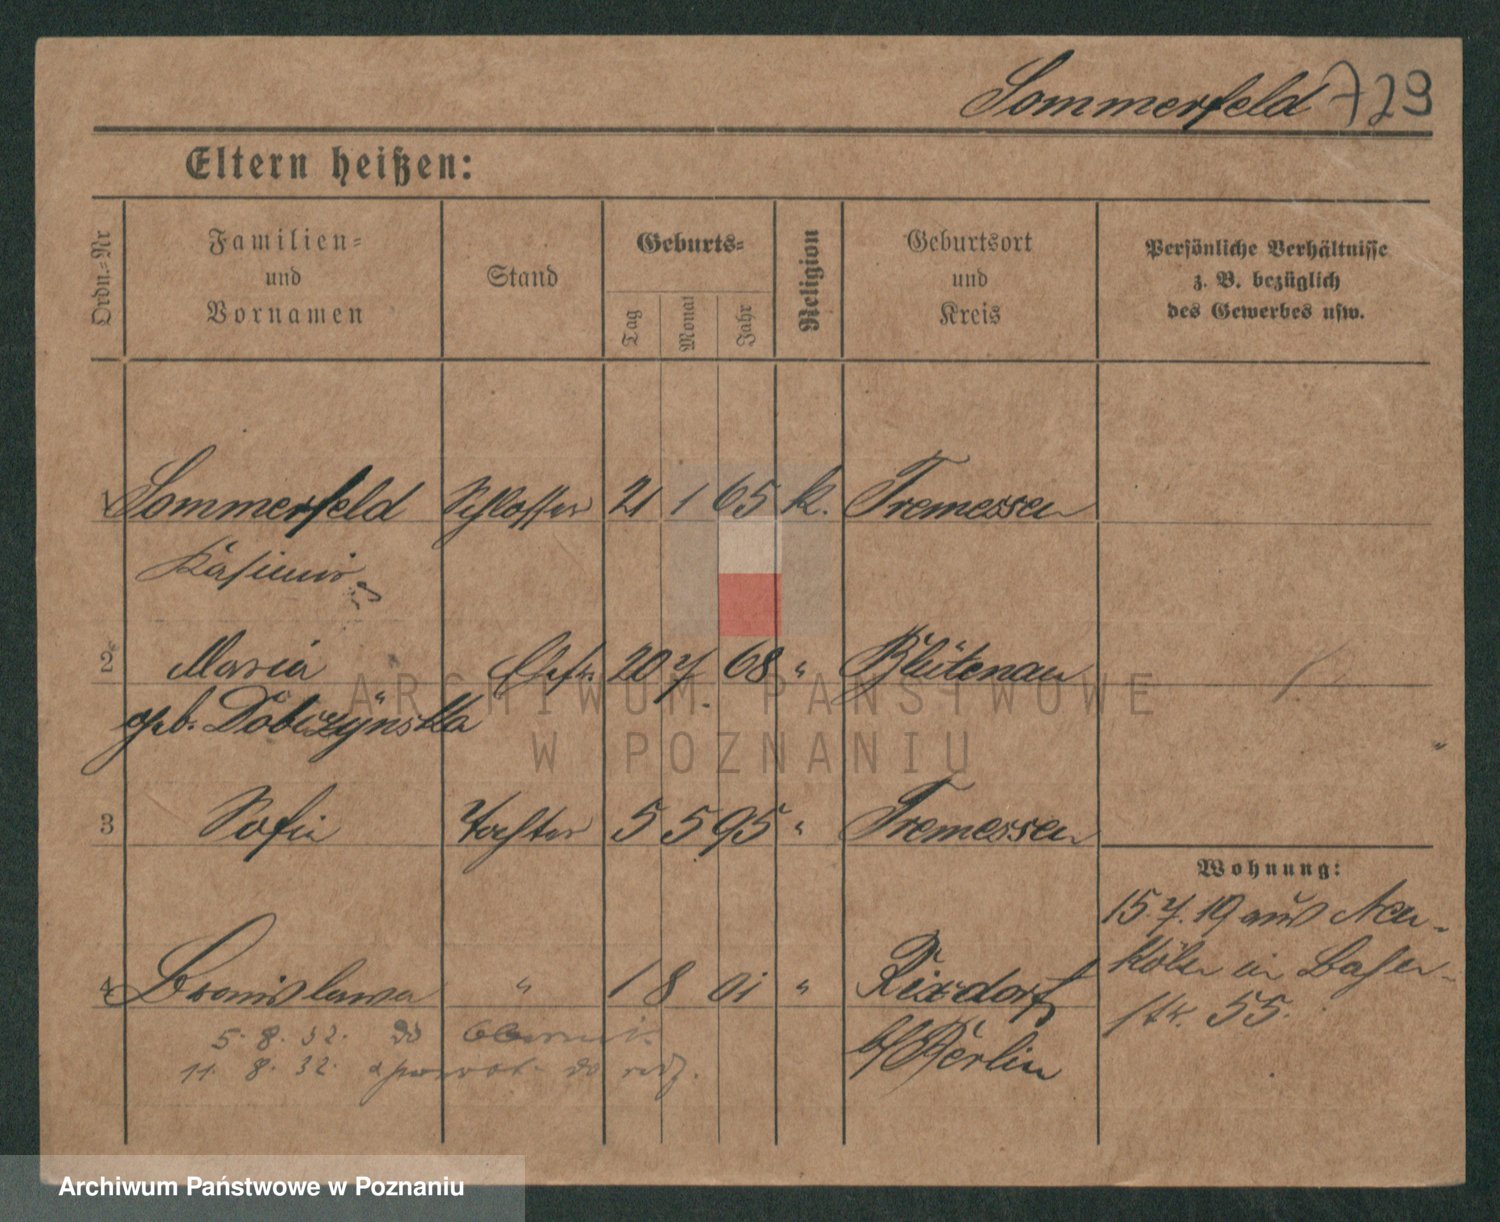 Sommerfeld 729
Eltern heißen:
Ordn.-Nr
Familien-
und
Vornamen
Stand
Geburts-
Tag
Monat
Jahr
Religion
Geburtsort
und
Kreis
Persönliche Verhältnisse
z. B. bezüglich
des Gewerbes usw.
1 Sommerfeld Schlosser 21 1 65 k. Tremessen
Kasimir
2 Maria Ehefr. 20 7. 68 " Blütenau
geb.
3 Sofia Tochter 5 5 95 " Tremessen
Wohnung:
15.7.19 aus Neu-
kölln in
str. 55.
4 Bronislawa " 1 8 01 " Rixdorf
b/Berlin
5. 8. 32. do
11. 8. 32. do
ARCHIWUM PAŃSTWOWE
W POZNANIU
Archiwum Państwowe w Poznaniu